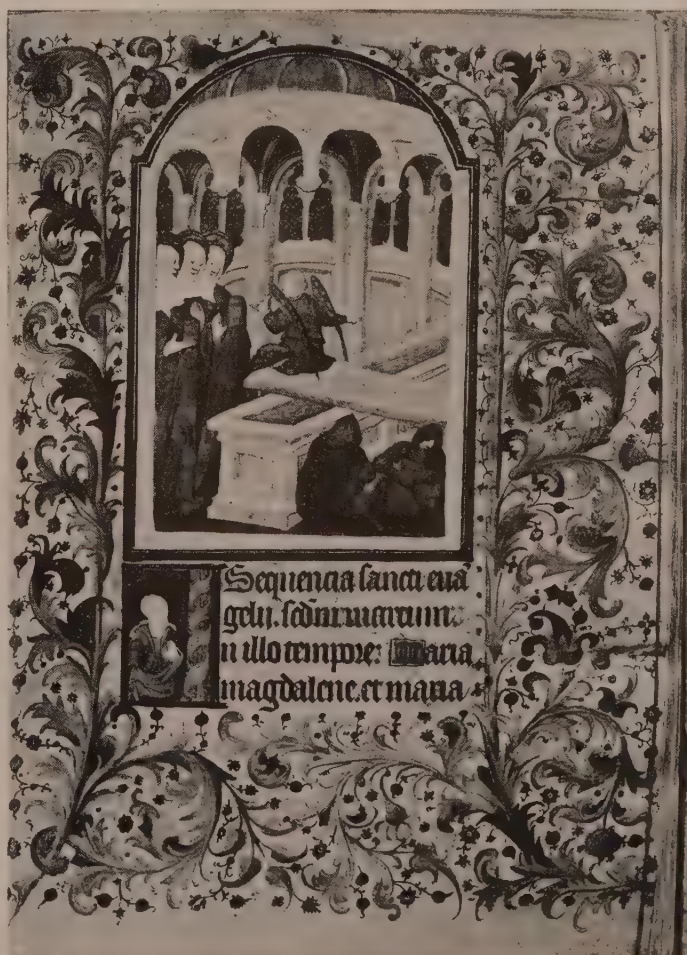 Sequencia sancti euā
gelii. scdm marcum.
n illo tempore: Maria
magdalene. et maria